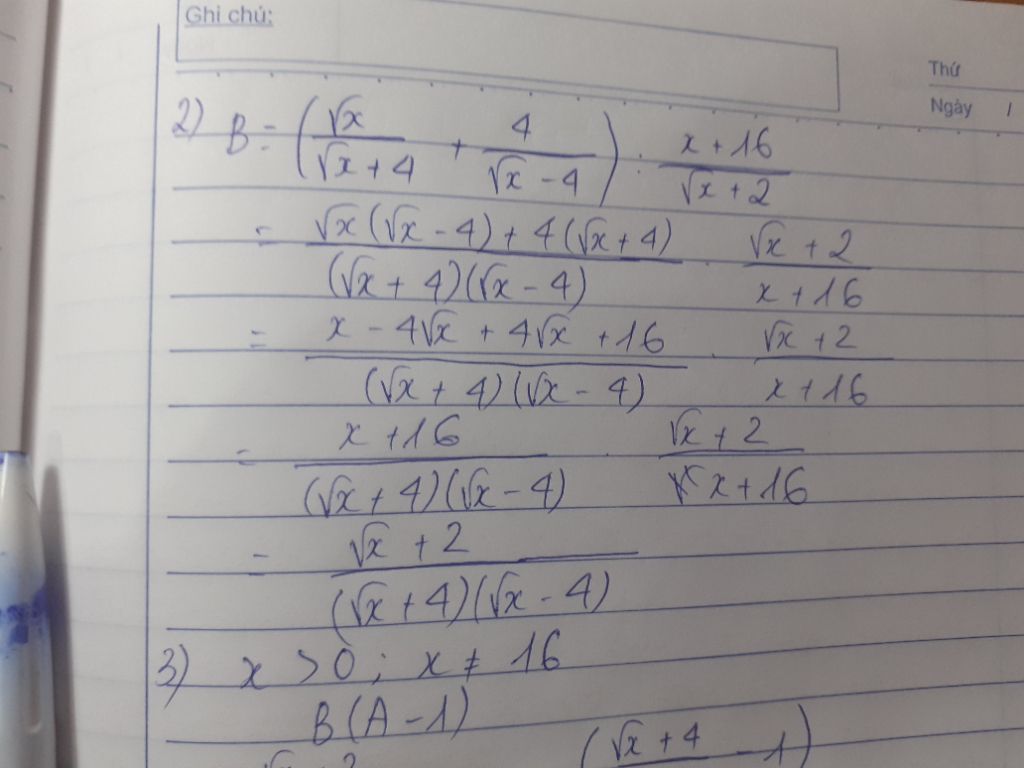 Ghi chú:
Thứ
Ngày /
2) B = (√x/(√x + 4) + 4/(√x - 4)) : (x + 16)/(√x + 2)
= (√x(√x - 4) + 4(√x + 4))/((√x + 4)(√x - 4)) . (√x + 2)/(x + 16)
= (x - 4√x + 4√x + 16)/((√x + 4)(√x - 4)) . (√x + 2)/(x + 16)
= (x + 16)/((√x + 4)(√x - 4)) . (√x + 2)/(x + 16)
= (√x + 2)/((√x + 4)(√x - 4))
3) x > 0 ; x ≠ 16
B(A - 1)
(√x + 4 - 1)